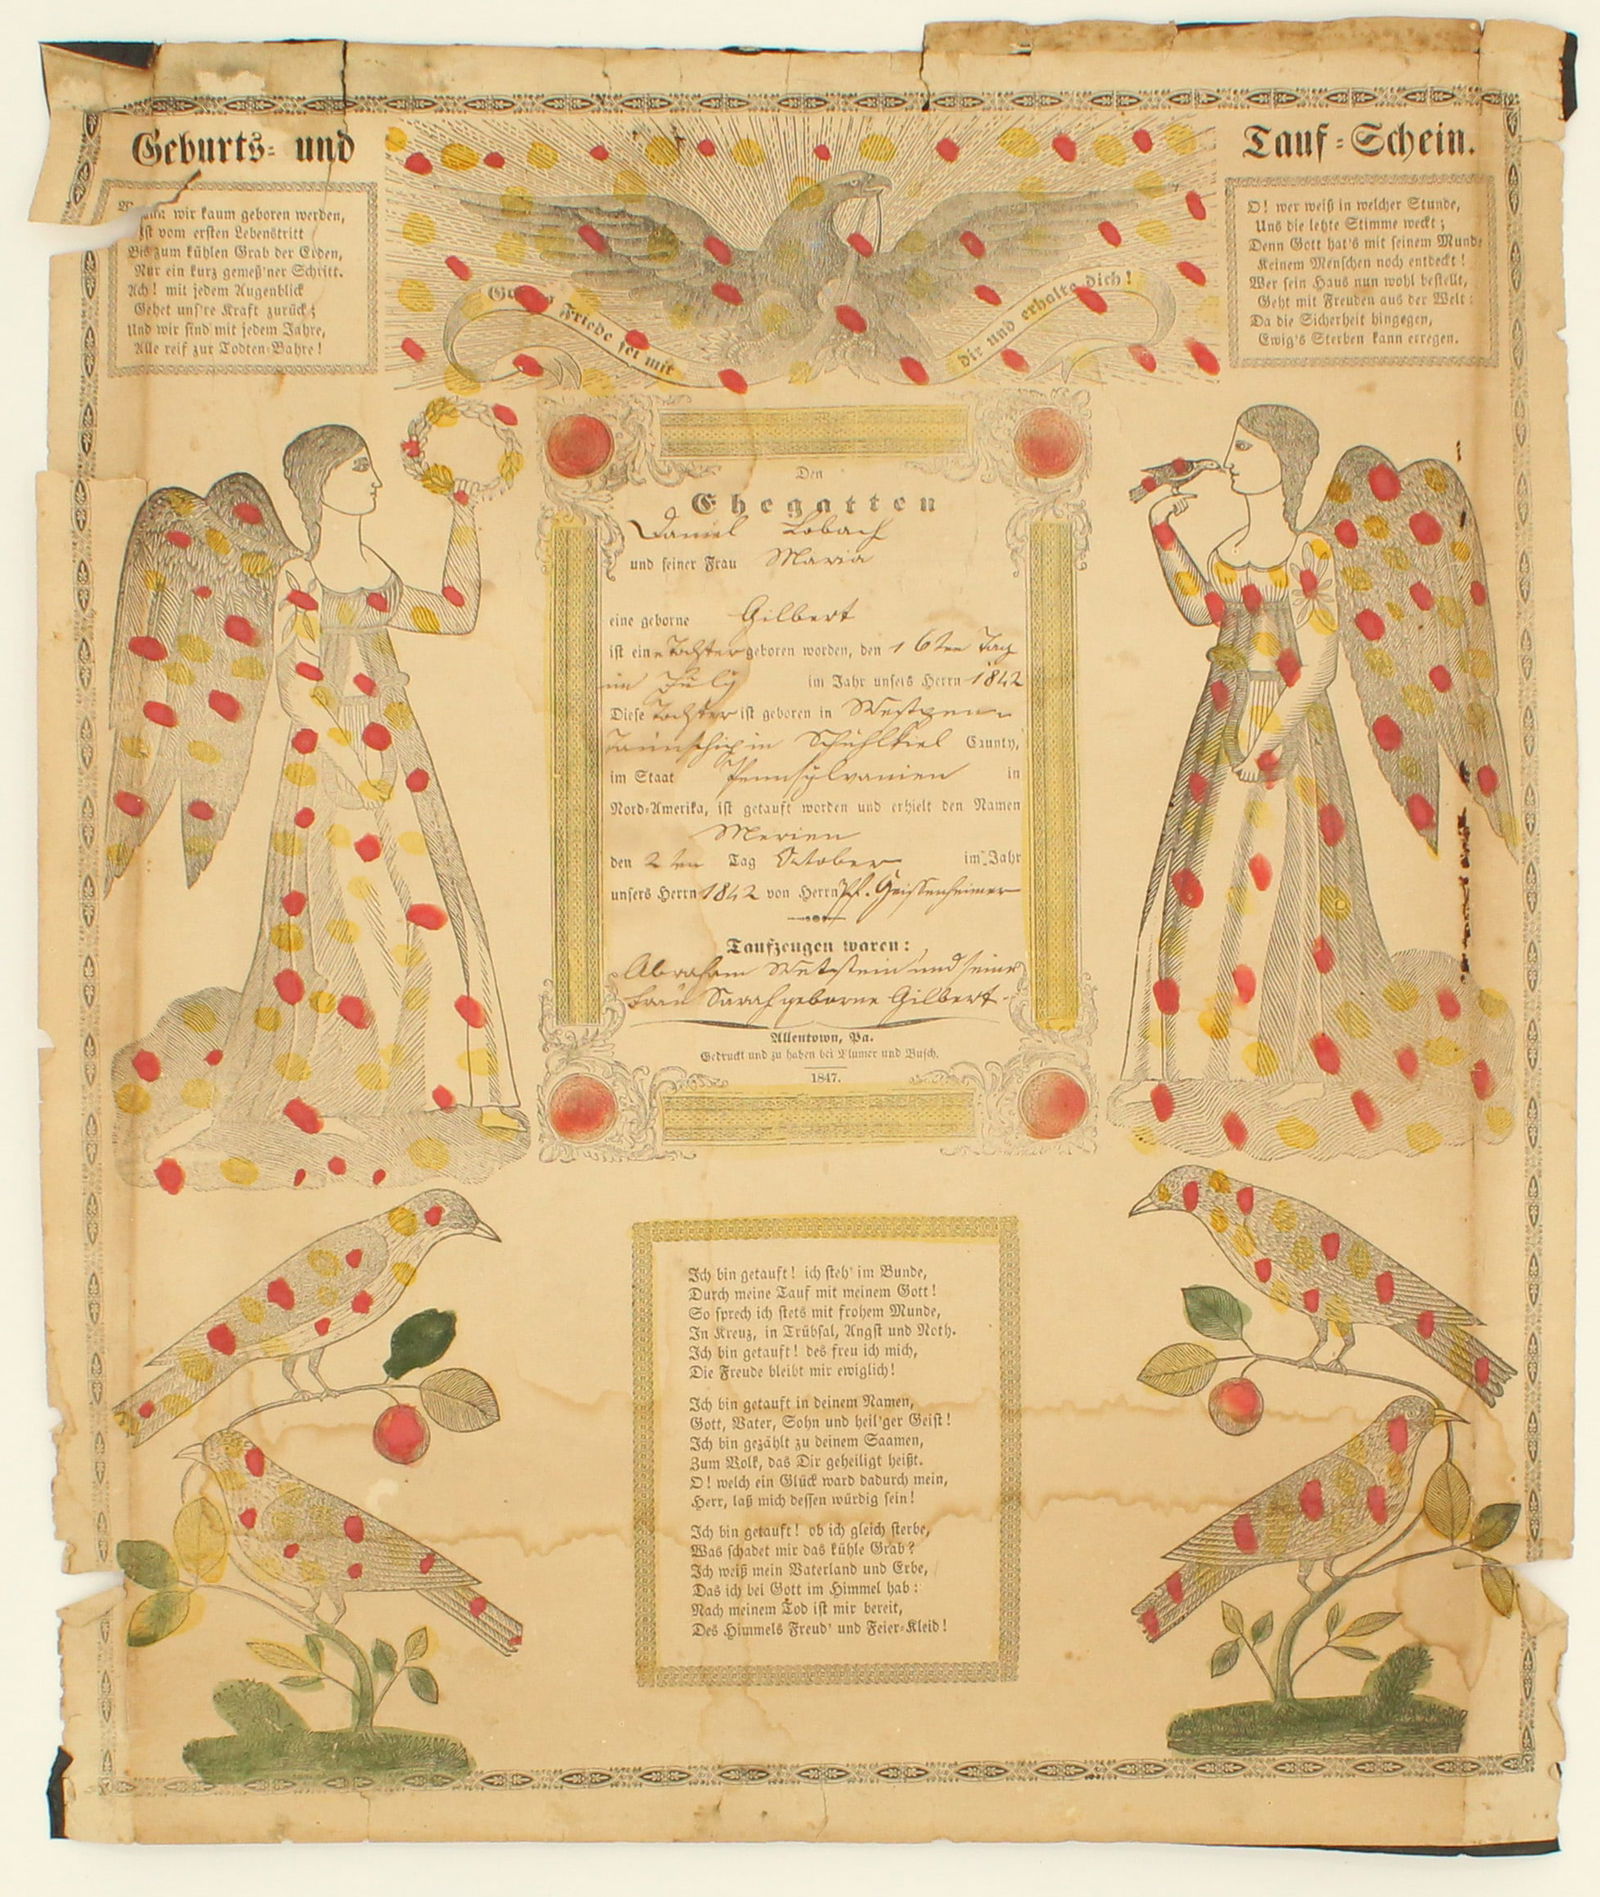 Geburts- und Tauf-Schein.
wir kaum geboren werden,
Ist vom ersten Lebenstritt
Bis zum kühlen Grab der Erden,
Nur ein kurz gemeß'ner Schritt.
Ach! mit jedem Augenblick
Gehet uns're Kraft zurück;
Und wir sind mit jedem Jahre,
Alle reif zur Todten-Bahre!
Friede sei mit dir und erhalte dich!
O! wer weiß in welcher Stunde,
Uns die letzte Stimme weckt;
Denn Gott hat's mit seinem Munde
Keinem Menschen noch entdeckt!
Wer sein Haus nun wohl bestellt,
Geht mit Freuden aus der Welt:
Da die Sicherheit hingegen,
Ewig's Sterben kann erregen.
Den
Ehegatten
Daniel Lobach
und seiner Frau Maria
eine geborne Gilbert
ist eine Tochter geboren worden, den 16ten Tag
im July im Jahr unsers Herrn 1842
Diese Tochter ist geboren in Westpenn
Taunschip in Schuhlkiel County,
im Staat Pennsylvanien in
Nord-Amerika, ist getauft worden und erhielt den Namen
Merien
den 2ten Tag October im Jahr
unsers Herrn 1842 von Herrn Pf. Geissenheimer
Taufzeugen waren:
Abraham Wetzstein und seine
Frau Sarah geborne Gilbert.
Allentown, Pa.
Gedruckt und zu haben bei Blumer und Busch.
1847.
Ich bin getauft! ich steh' im Bunde,
Durch meine Tauf mit meinem Gott!
So sprech ich stets mit frohem Munde,
In Kreuz, in Trübsal, Angst und Noth.
Ich bin getauft! des freu ich mich,
Die Freude bleibt mir ewiglich!
Ich bin getauft in deinem Namen,
Gott, Vater, Sohn und heil'ger Geist!
Ich bin gezählt zu deinem Saamen,
Zum Volk, das Dir geheiligt heißt.
O! welch ein Glück ward dadurch mein,
Herr, laß mich dessen würdig sein!
Ich bin getauft! ob ich gleich sterbe,
Was schadet mir das kühle Grab?
Ich weiß mein Vaterland und Erbe,
Das ich bei Gott im Himmel hab:
Nach meinem Tod ist mir bereit,
Des Himmels Freud' und Feier-Kleid!